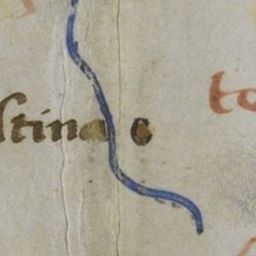 stina c
to